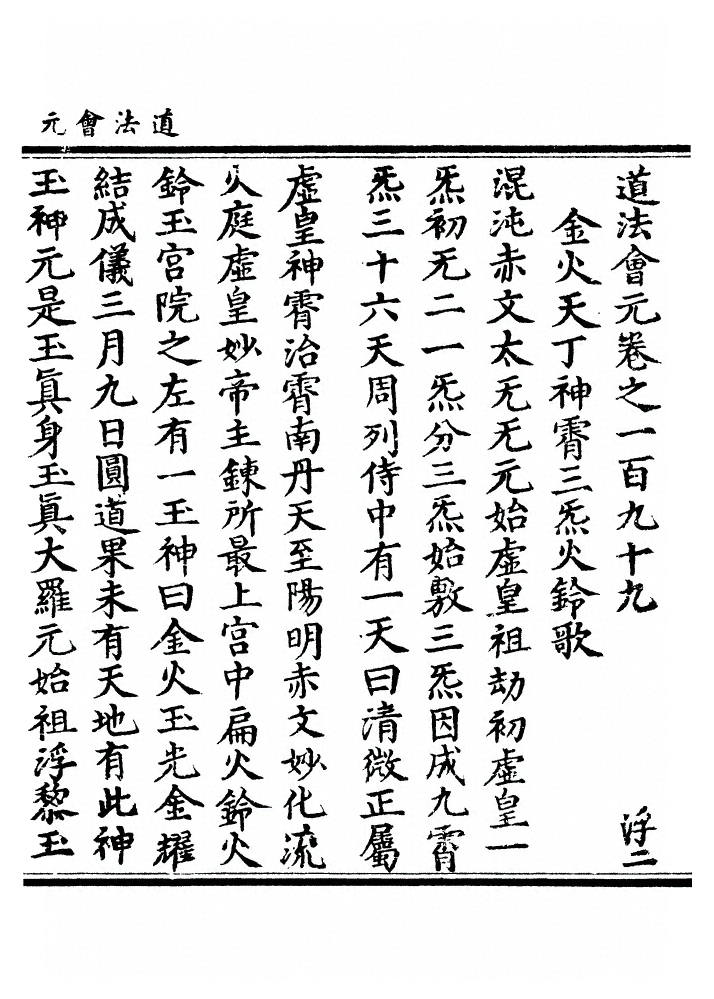 道法會元
道法會元卷之一百九十九　浮二
金火天丁神霄三炁火鈴歌
混沌赤文太无无元始虛皇祖劫初虛皇一
炁初无二一炁分三炁始敷三炁因成九霄
炁三十六天周列侍中有一天曰清微正屬
虛皇神霄治霄南丹天至陽明赤文妙化流
火庭虛皇妙帝主鍊所最上宮中扁火鈴火
鈴玉宮院之左有一玉神曰金火玉光金耀
結成儀三月九日圓道果未有天地有此神
玉神元是玉眞身玉眞大羅元始祖浮黎玉